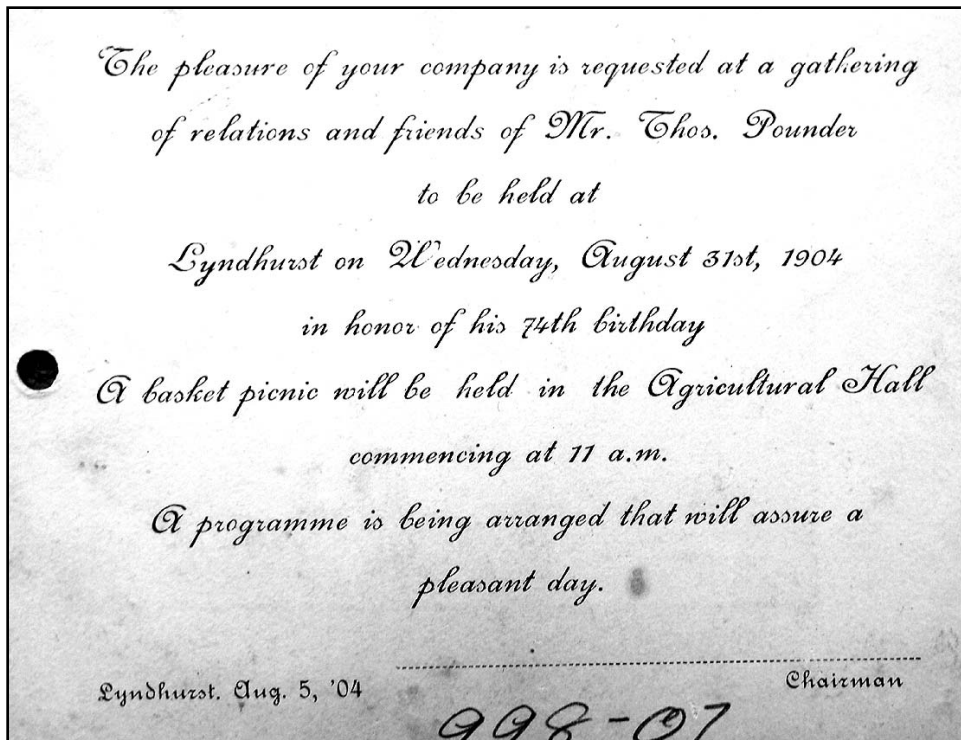 The pleasure of your company is requested at a gathering
of relations and friends of Mr. Thos. Pounder
to be held at
Lyndhurst on Wednesday, August 31st, 1904
in honor of his 74th birthday
A basket picnic will be held in the Agricultural Hall
commencing at 11 a.m.
A programme is being arranged that will assure a
pleasant day.
Chairman
Lyndhurst. Aug. 5, '04
998-07